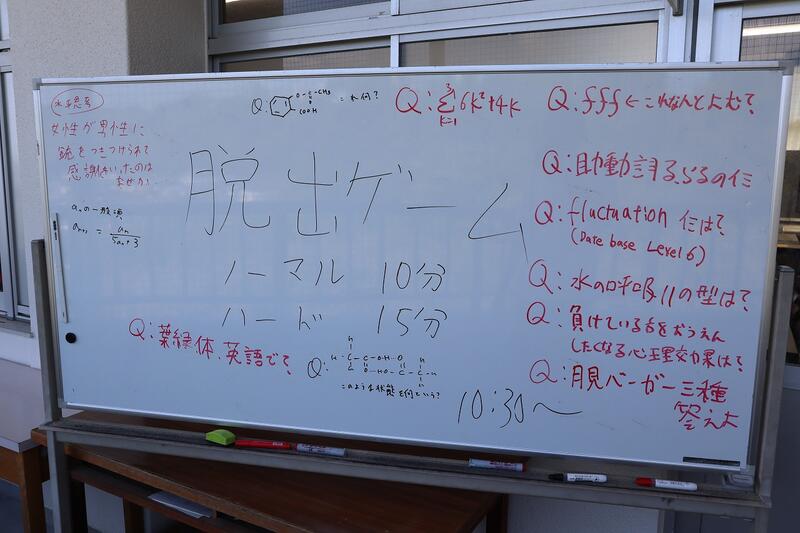 水平思考
女性が男性に
銃をつきつけられて
感謝した
のは
なぜか
anの一般項
an+1 = an / 5an+3
Q: O-C-CH3 O COOH = これ何?
Q: 3 Σ k=1 6k²+4k
Q: fff ← これなんとよむ?
脱出ゲーム
ノーマル 10分
ハード 15分
10:30〜
Q: 助動詞る、らるの仁
Q: fluctuation 仁は?
(Date base Level 6)
Q: 水の呼吸11の型は?
Q: 負けている方をおうえん
したくなる心理効果は?
Q: 月見バーガー三種
答えよ
Q: 葉緑体、英語で?
Q:
のような状態を何という?